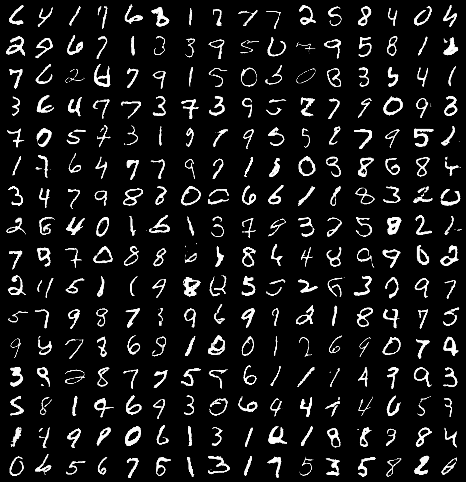 6 4 1 7 6 8 1 7 7 7 2 5 8 4 0 4
2 9 6 7 1 3 3 9 5 0 7 9 5 8 1 2
7 6 2 8 7 9 1 5 0 3 0 8 3 5 4 1
3 6 4 9 7 3 7 3 9 5 2 7 9 0 9 8
7 0 5 7 3 1 9 7 9 5 5 2 7 9 5 1
1 7 6 4 7 7 9 7 1 5 0 9 8 6 8 4
3 4 7 9 8 8 0 0 6 6 1 8 8 3 2 0
2 6 4 0 1 6 1 3 7 9 3 7 5 8 2 1
7 9 7 0 8 8 6 1 8 6 4 8 9 9 0 2
2 4 5 1 1 9 8 8 5 5 2 6 3 0 9 7
5 7 9 8 7 3 9 6 9 9 2 1 8 4 7 5
9 4 7 8 6 8 1 0 0 1 2 6 9 0 7 9
3 9 2 8 7 7 5 5 6 1 1 1 4 9 9 3
5 8 1 9 6 9 3 0 6 9 4 4 4 6 5 3
1 4 9 9 0 6 1 3 1 2 1 8 8 3 8 4
0 6 5 6 7 5 1 3 1 7 5 3 5 8 2 8